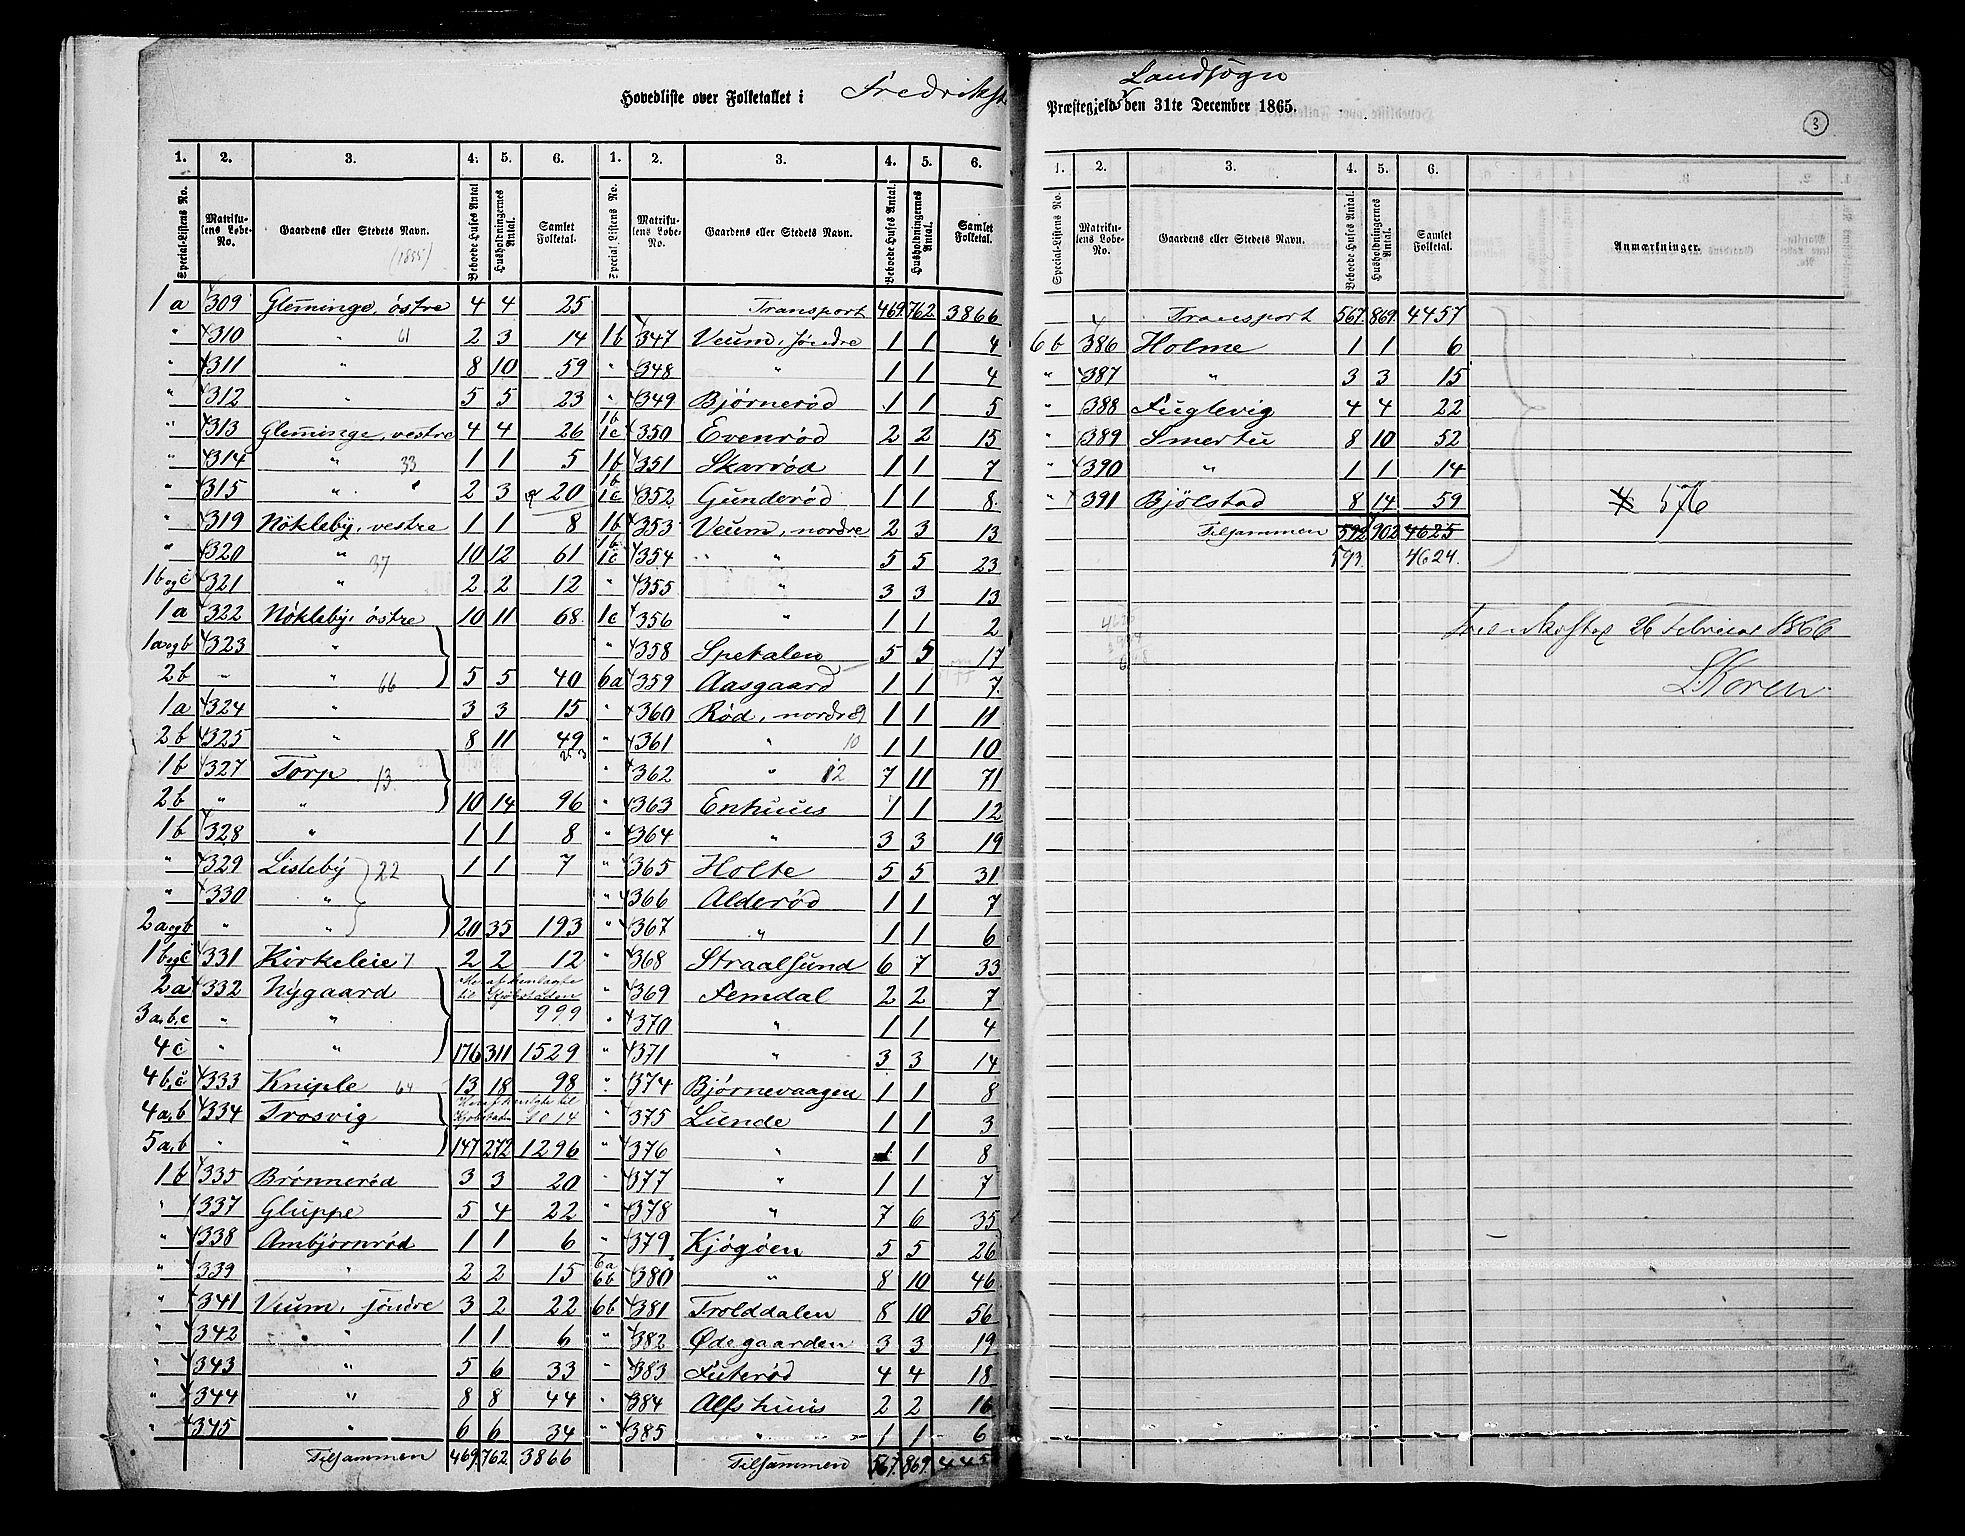 Hovedliste over Folketallet i Fredrikst
Landsogn
Præstegjeld den 31te December 1865.
3
1. 2. 3. 4. 5. 6. 1. 2. 3. 4. 5. 6.
Special-Listens No. Matrikulens Løbe-No. Gaardens eller Stedets Navn. Beboede Huses Antal Husholdningernes Antal. Samlet Folketal. Special Listens No. Matrikulens Løbe-No. Gaardens eller Stedets Navn. Beboede Huses Antal. Husholdningernes Antal. Samlet Folketal.
(1855)
1 a 309 Gleminge, østre 4 4 25
" 310 " 61 2 3 14
" 311 " 8 10 59
" 312 " 5 5 23
" 313 Gleminge, vestre 4 4 26
" 314 " 33 1 1 5
" 315 " 2 3 20
" 319 Nøkleby, vestre 1 1 8
" 320 " 37 10 12 61
1b og c 321 " 2 2 12
1a 322 Nøkleby, østre 10 11 68
1a og b 323 "
2b " " 66 5 5 40
1a 324 " 3 3 15
2b 325 " 8 11 49
1b 327 Torp 13
2b " " 10 14 96
1b 328 " 1 1 8
" 329 Lisleby 22 1 1 7
" 330 "
2a og b " " 20 35 193
1b og c 331 Kirkeleie 7 2 2 12
2a 332 Nygaard Heraf henlagte til Kjøbstaden
3a, b, c " " 999
4c " " 176 311 1529
4b, c 333 Kniple 64 13 18 98
4a, b 334 Trosvig Heraf henlagte til Kjøbstaden 1014
5a, b " " 147 272 1296
1b 335 Brønnerød 3 3 20
" 337 Gluppe 5 4 22
" 338 Ambjørnrød 1 1 6
" 339 " 2 2 15
" 341 Veum, søndre 3 2 22
" 342 " 1 1 6
" 343 " 5 6 33
" 344 " 8 8 44
" 345 " 6 6 34
Tilsammen 469 762 3866
Transport 469 762 3866
1b 347 Veum, søndre 1 1 4
" 348 " 1 1 4
" 349 Bjørnerød 1 1 5
1b 1c 350 Evenrød 2 2 15
1b 351 Skarrød 1 1 7
1b 1c 352 Gunderød 1 1 8
1b 353 Veum, nordre 2 3 13
1b 1c 354 " " 5 5 23
355 " 3 3 13
1c 356 " 1 1 2
" 358 Spetalen 5 5 17
6a 359 Aasgaard 1 1 7
" 360 Rød, nordre 9 1 1 11
" 361 " 10 1 1 10
" 362 " 12 7 11 71
" 363 Enhuus 1 1 12
" 364 " 3 3 19
" 365 Holte 5 5 31
" 366 Alderød 1 1 7
" 367 " 1 1 6
" 368 Straalsund 6 7 33
" 369 Femdal 2 2 7
" 370 " 1 1 4
" 371 " 3 3 14
" 374 Bjørnevaagen 1 1 8
" 375 Lunde 1 1 3
" 376 " 1 1 8
" 377 " 1 1 7
" 378 " 7 6 35
" 379 Kjøgøen 5 5 26
6a 6b 380 " 8 10 46
6b 381 Trolddalen 8 10 56
" 382 Ødegaarden 3 3 19
" 383 Futerød 4 4 18
" 384 Alfshuus 2 2 16
" 385 " 1 1 6
Tilsammen 567 869 445
1. 2. 3. 4. 5. 6.
Special-Listens No. Matrikulens Løbe-No. Gaardens eller Stedets Navn. Beboede Huses Antal. Husholdningernes Antal. Samlet Folketal. Anmærkninger.
Transport 567 869 4457
6 b 386 Holme 1 1 6
" 387 " 3 3 15
" 388 Fuglevig 4 4 22
" 389 Smertu 8 10 52
" 390 " 1 1 14
" 391 Bjølstad 8 14 59
576
Tilsammen 592 902 4625
593 4624
Fredrikstad 26 Februar 1866
Koren